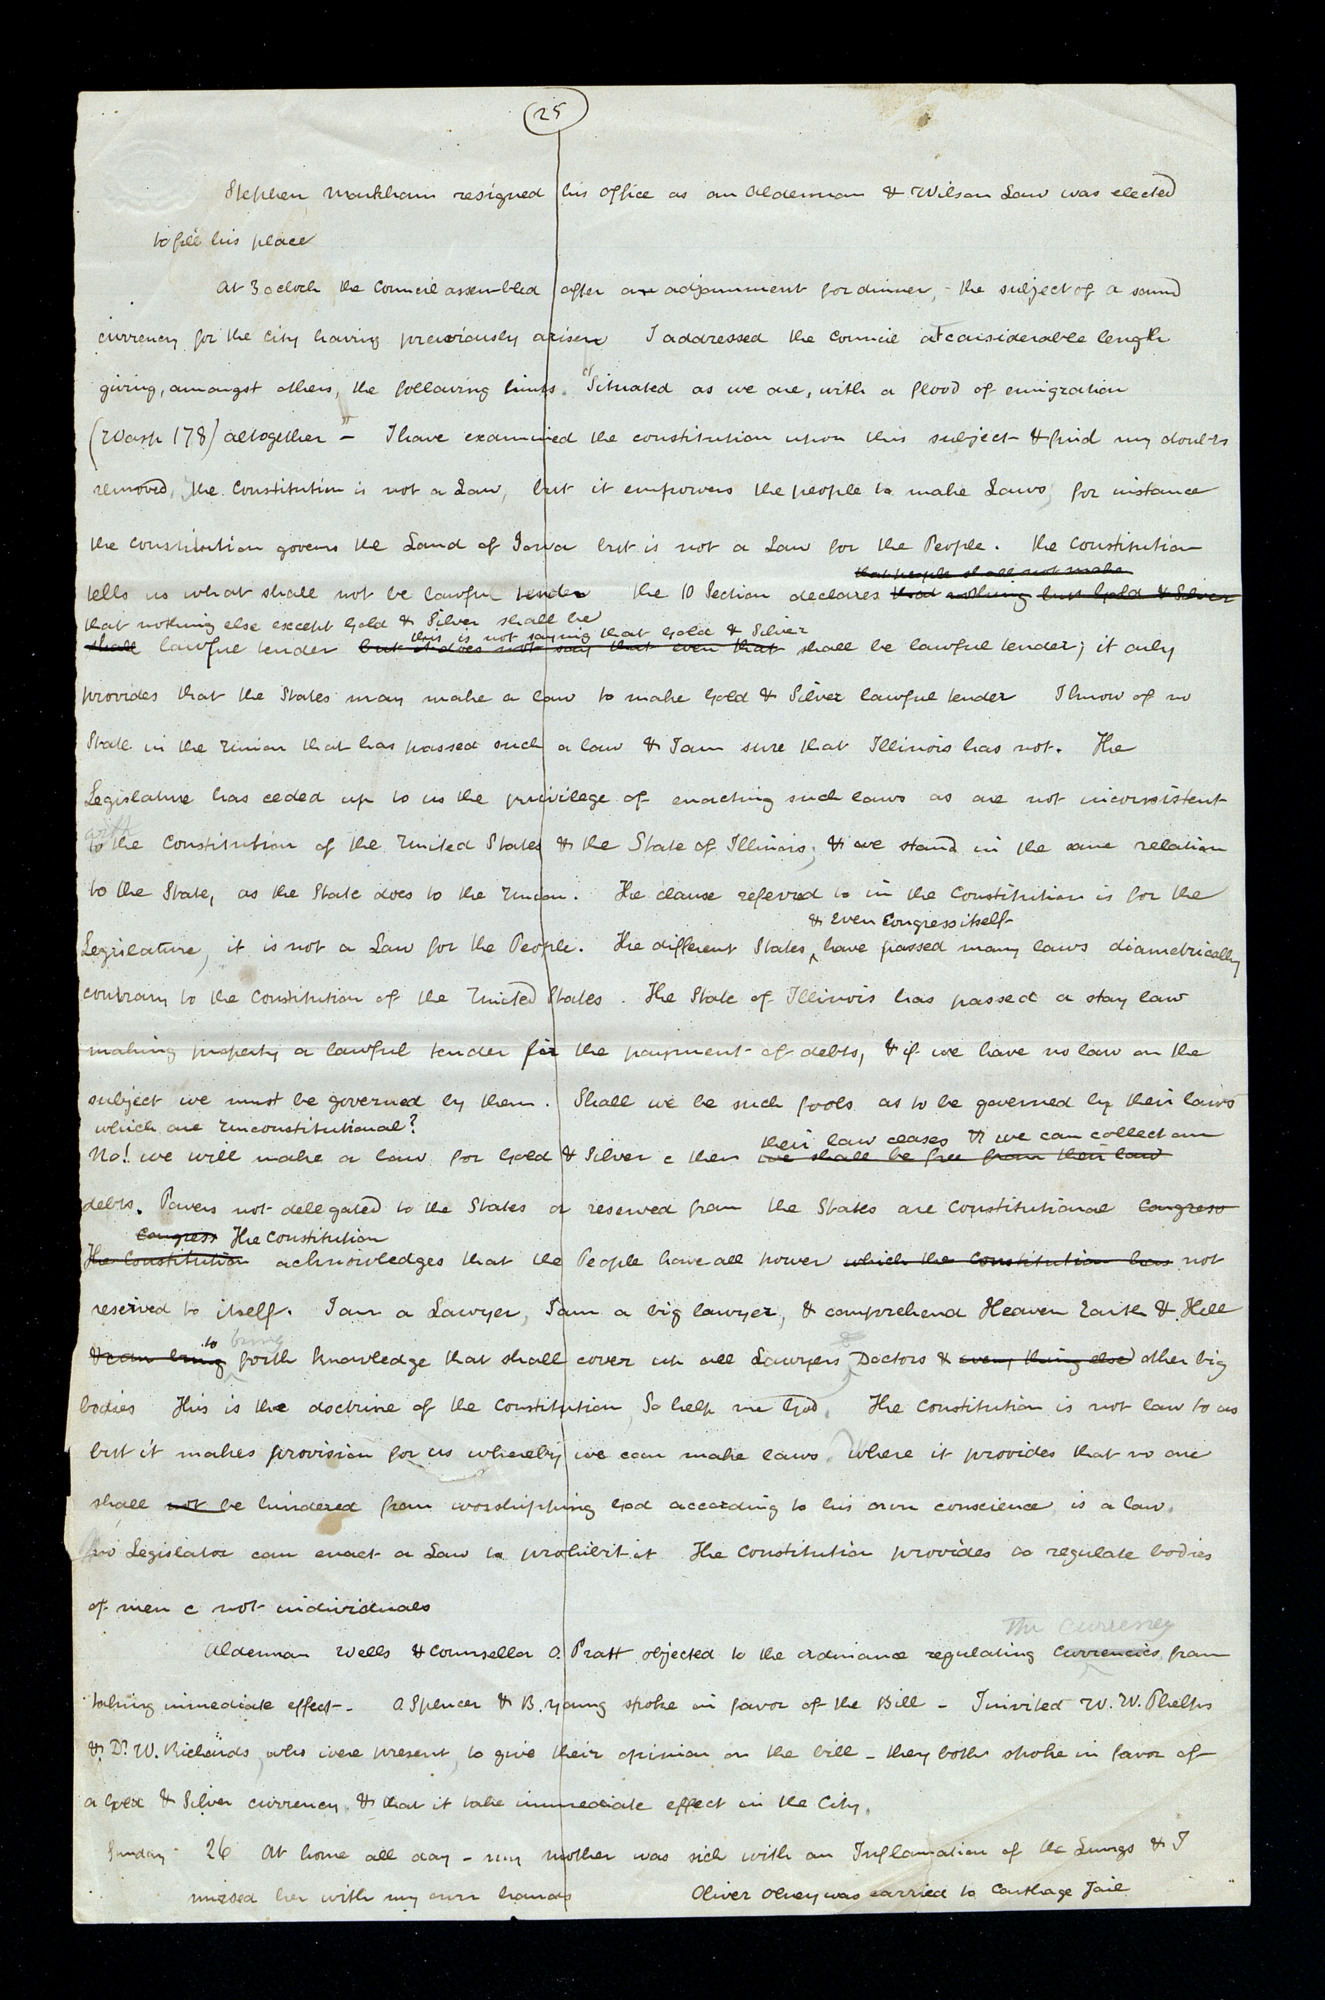 25
Stephen Markham resigned his office as an Alderman & Wilson Law was elected
to fill his place
At 3 oclock the Council assembled after an adjournment for dinner, - the subject of a sound
currency for the City having previously arisen I addressed the Council at considerable length
giving, amongst others, the following hints. "Situated as we are, with a flood of emigration
(Wasp 178) altogether" - I have examined the constitution upon this subject & find my doubts
removed, The Constitution is not a Law, but it empowers the people to make Laws, for instance
the constitution governs the Land of Iowa but is not a Law for the People. The Constitution
that people shall not make
tells us what shall not be lawful tender the 10 Section declares that nothing but Gold & Silver
that nothing else except Gold & Silver shall be
this is not saying that Gold & Silver
shall lawful tender but it does not say that even that shall be lawful tender; it only
provides that the States may make a law to make Gold & Silver lawful tender I know of no
State in the Union that has passed such a law & I am sure that Illinois has not. The
Legislature has ceded up to us the privilege of enacting such laws as are not inconsistent
with
to the Constitution of the United States & the State of Illinois; & we stand in the same relation
to the State, as the State does to the Union. The clause referred to in the Constitution is for the
& Even Congress itself
Legislature, it is not a Law for the People. The different States, have passed many laws diametrically
contrary to the Constitution of the United States. The State of Illinois has passed a stay law
making property a lawful tender for the payment of debts, & if we have no law on the
subject we must be governed by them. Shall we be such fools as to be governed by their laws
which are Unconstitutional?
their law ceases & we can collect our
No! we will make a law for Gold & Silver c then we shall be free from their law
debts. Powers not delegated to the States or reserved from the States are Constitutional Congress
Congress The Constitution
The Constitution acknowledges that the People have all power which the constitution has not
reserved to itself. I am a Lawyer, I am a big lawyer, & comprehend Heaven Earth & Hell
to bring
& can bring forth knowledge that shall cover up all Lawyers Doctors & every thing else other big
bodies This is the doctrine of the Constitution, So help me God. The Constitution is not law to us
but it makes provision for us whereby we can make laws. Where it provides that no one
shall not be hindered from worshipping God according to his own conscience is a law.
No Legislator can enact a Law to prohibit it The Constitution provides to regulate bodies
of men c not individuals
The Currency
Alderman Wells & Counsellor O. Pratt objected to the ordinance regulating Currencies from
taking immediate effect - O Spencer & B. Young spoke in favor of the Bill - I invited W. W. Phelps
& Dr. W. Richards, who were present, to give their opinion on the bill - they both spoke in favor of
a Gold & Silver currency, & that it take immediate effect in the City.
Sunday 26 At home all day - my mother was sick with an Inflamation of the Lungs & I
nursed her with my own hands Oliver Olney was carried to Carthage Jail